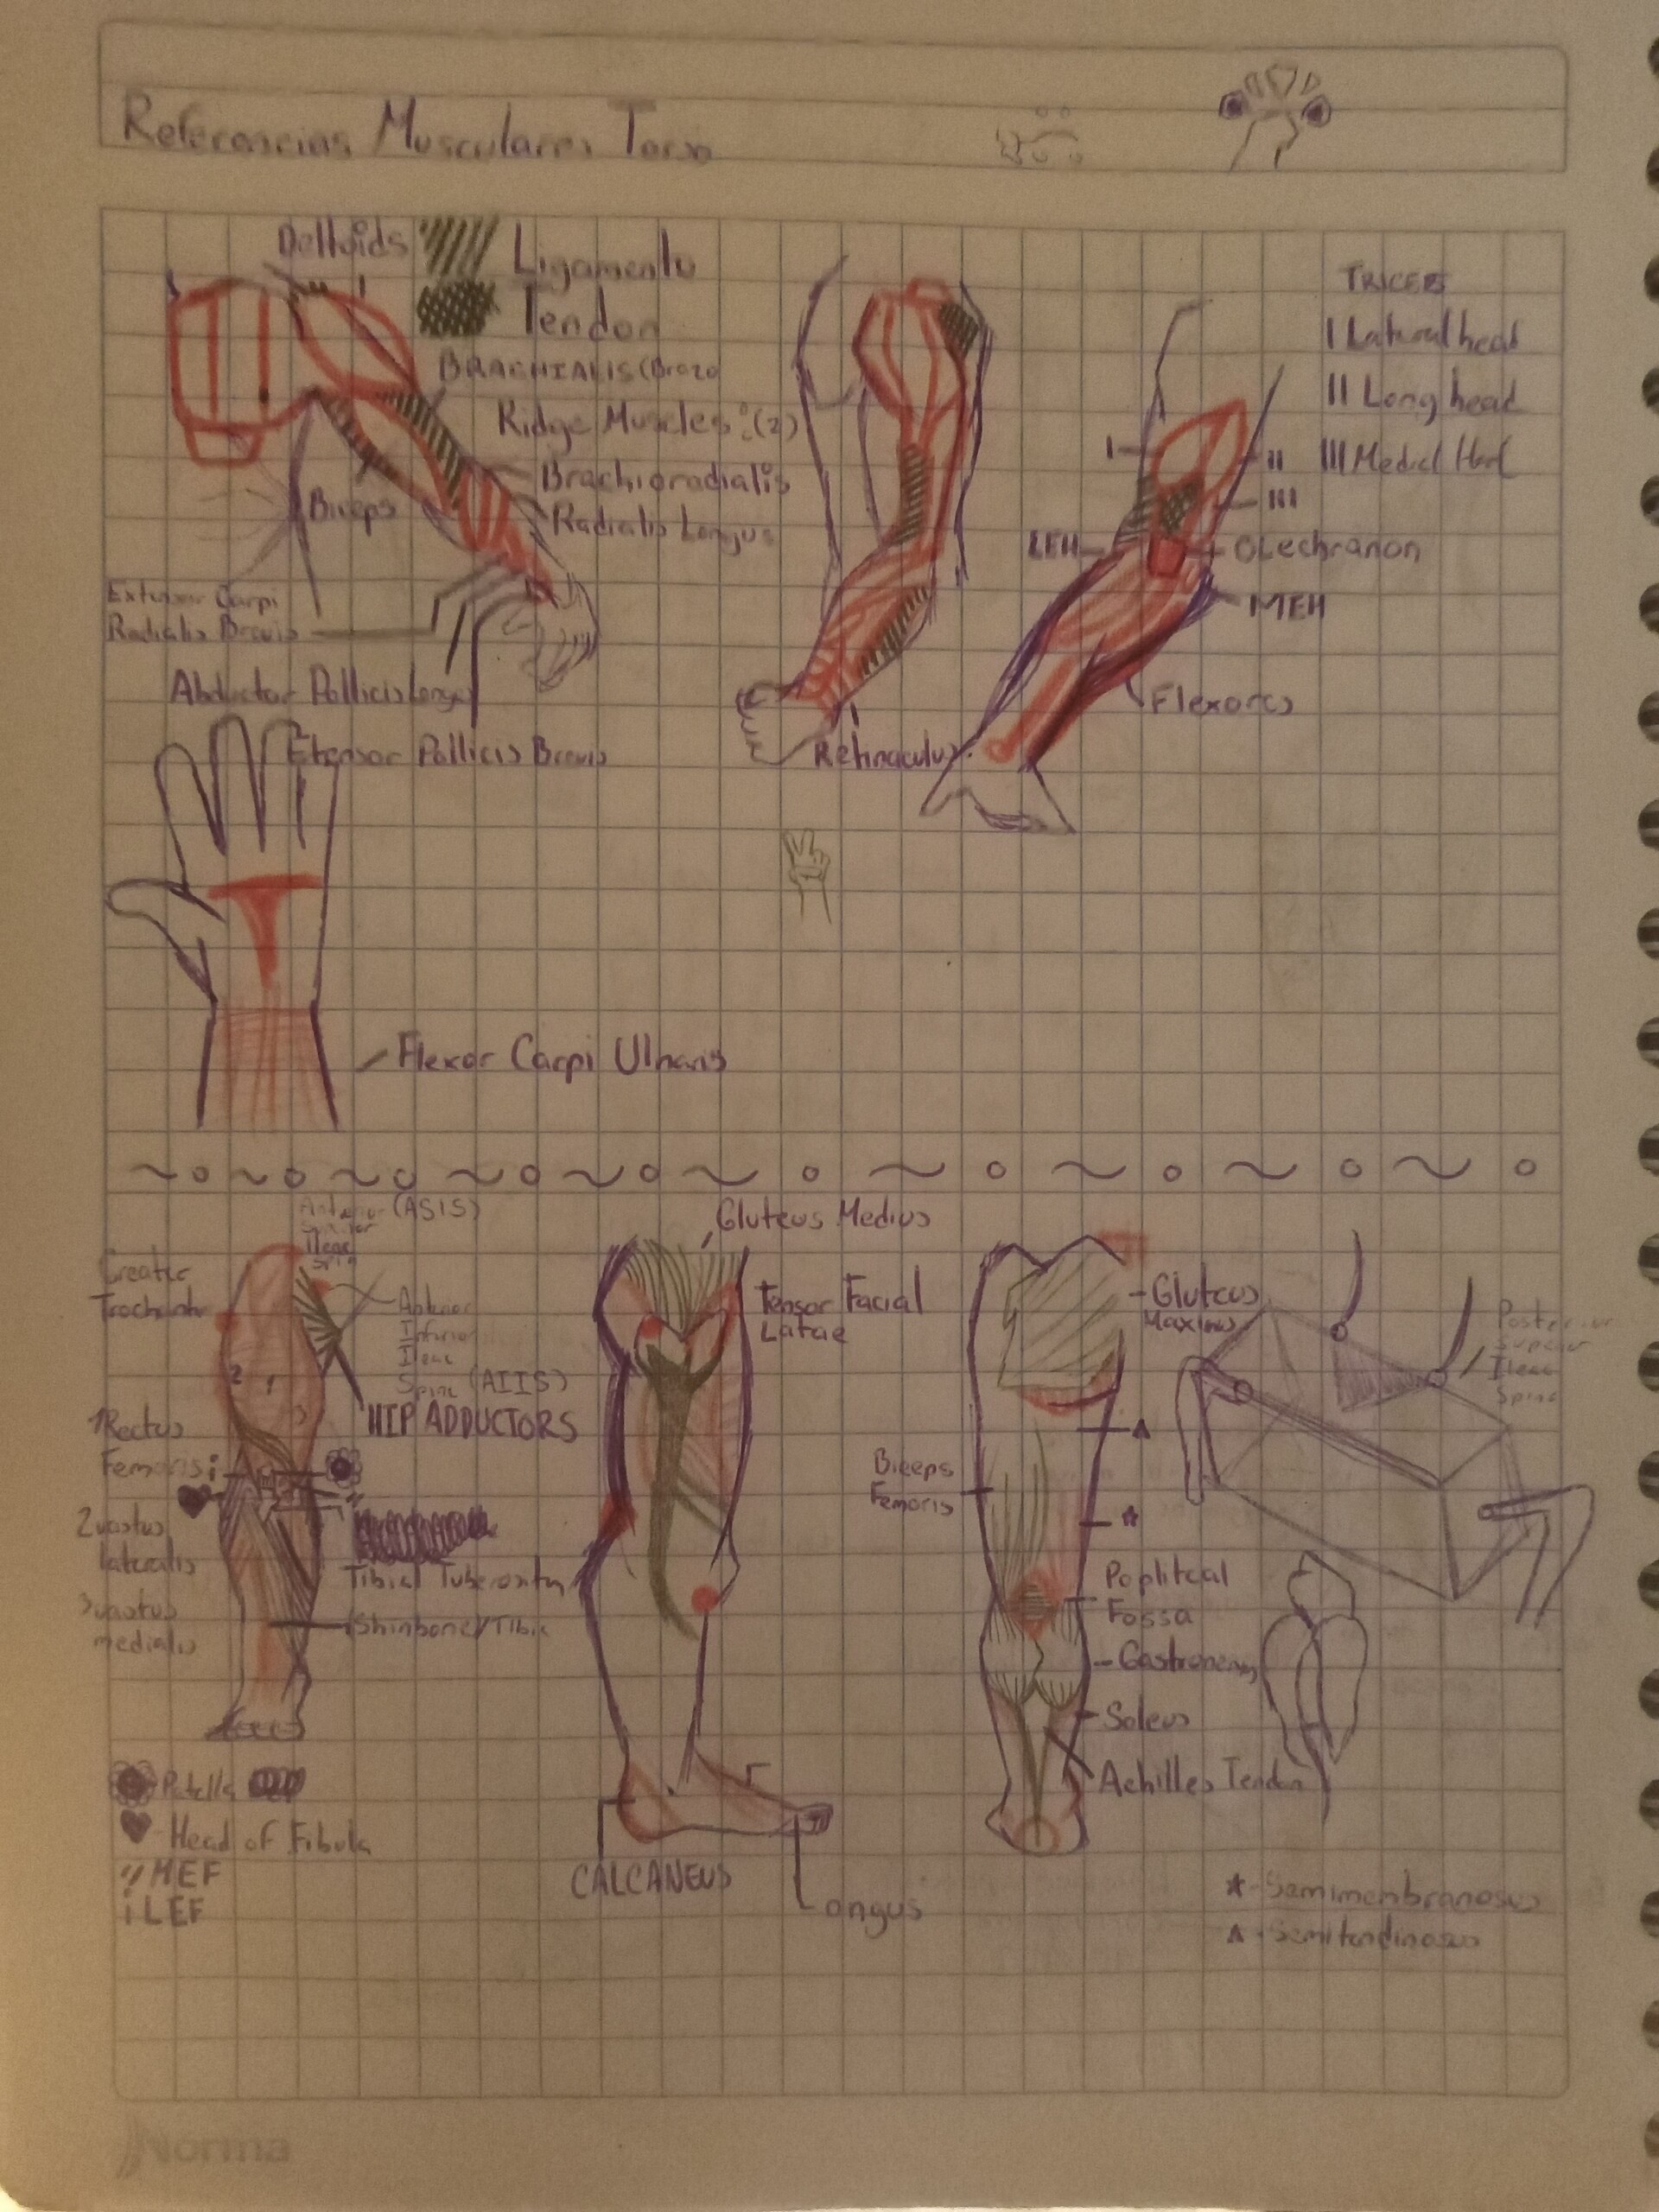 Referencias Musculares Torso
Deltoids
Ligamento
Tendon
BRACHIALIS (Brazo
Ridge Muscles: (2)
Brachioradialis
Radialis Longus
Biceps
Extensor Carpi
Radialis Brevis
Abductor Pollicis Longus
Etensor Pollicis Brevis
Retinaculus
TRICEPS
I Lateral head
II Long head
III Medial Head
I
II
III
LEH
OLechranon
MEH
Flexores
Flexor Carpi Ulnaris
Anterior (ASIS)
Ileac
Greater
Trochanter
Anterior
Inferior
Ileac
Spine (AIIS)
HIP ADDUCTORS
2 1
3
1Rectus
Femoris
i
2vastus
lateralis
3vastus
medialis
Tibial Tuberosity
(Shinbone)/Tibia
Patella
Head of Fibula
" MEF
i LEF
Gluteus Medius
Tensor Facial
Latae
CALCANEUS
Longus
Gluteus
Maximus
Biceps
Femoris
Popliteal
Fossa
Gastronemus
Soleus
Achilles Tendon
Posterior
Superior
Ileac
Spine
★-Semimembranosus
▲-Semitendinosus
Norma